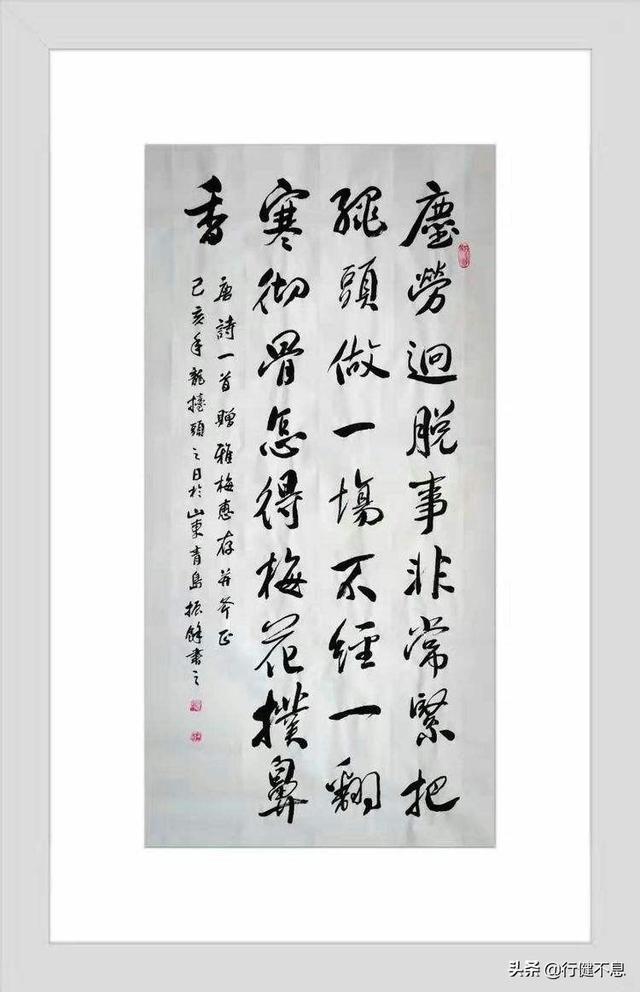 塵勞迥脫事非常緊把
繩頭做一場不經一翻
寒彻骨怎得梅花撲鼻
香
唐詩一首贈雅梅惠存并斧正
己亥年龍擡頭之日於山東青島振書之
头条 @行健不息